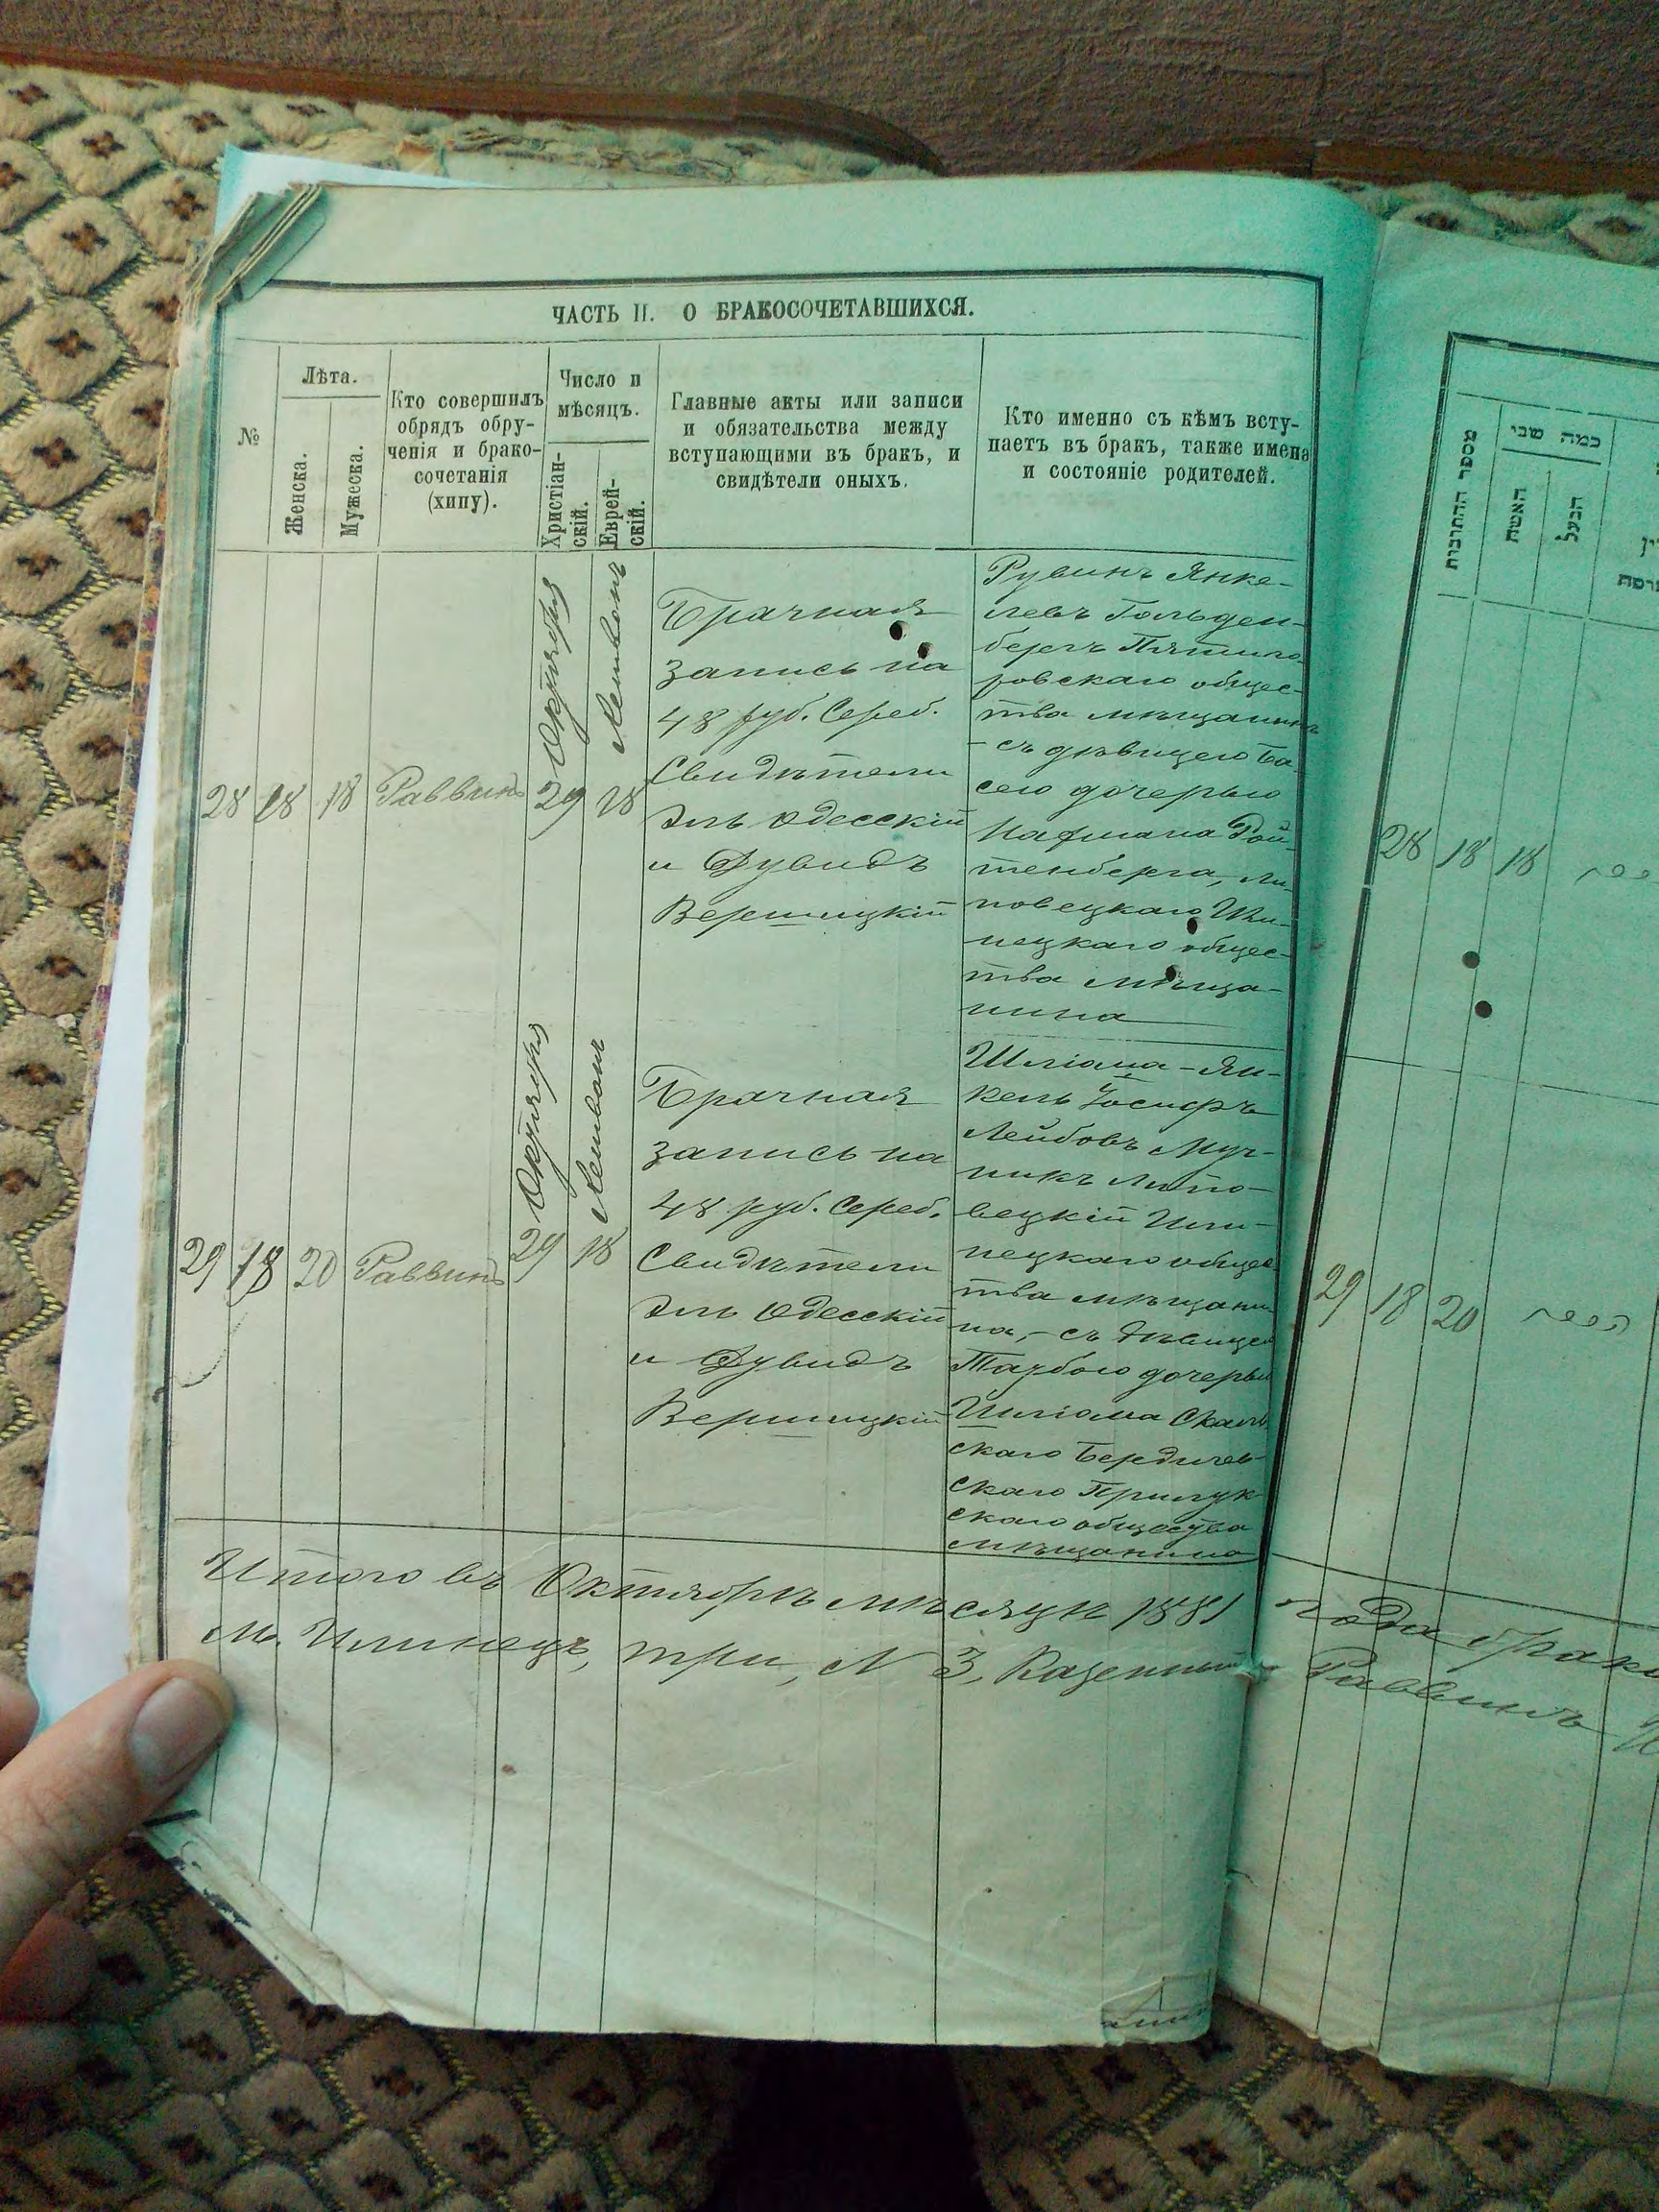 ЧАСТЬ II. О БРАКОСОЧЕТАВШИХСЯ.
№
Лѣта.
Женска.
Мужеска.
Кто совершилъ
обрядъ обру-
ченія и брако-
сочетанія
(хипу).
Число и
мѣсяцъ.
Христіан-
скій.
Еврей-
скій.
Главные акты или записи
и обязательства между
вступающими въ бракъ, и
свидѣтели оныхъ.
Кто именно съ кѣмъ всту-
паетъ въ бракъ, также имена
и состояніе родителей.
28 18 18 Раввинъ
29 Октября
18
Брачная
запись на
48 руб. Сереб.
Свидѣтели
Эль Одесскій
и Дувидъ
Вершицкій
Рувинъ Янке-
левъ Гольден-
бергъ Пятиго-
ровскаго общес-
тва мѣщанинъ
- съ дѣвицею Ба-
сею дочерью
Нафмана Рой-
тенберга, Ли-
повецкаго Или-
нецкаго общес-
тва мѣща-
нина
29 18 20 Раввинъ
29 Октября
18
Брачная
запись на
48 руб. Сереб.
Свидѣтели
Эль Одесскій
и Дувидъ
Вершицкій
Шліома-Ян-
кель Іосифъ
Лейбовъ Муч-
никъ Липо-
вецкій Или-
нецкаго общес
тва мѣщани
на, - съ дѣвицею
Таубою дочерью
Шліома Скаль
скаго Бердичев-
скаго Прилук-
скаго общества
мѣщанина
Итого въ Октябрѣ мѣсяцѣ 1881
м. Илинецъ, три, N 3, Казенный
מספר החתונות
כמה שני
האשה
הבעל
28 18 18
29 18 20
года брако
Раввинъ